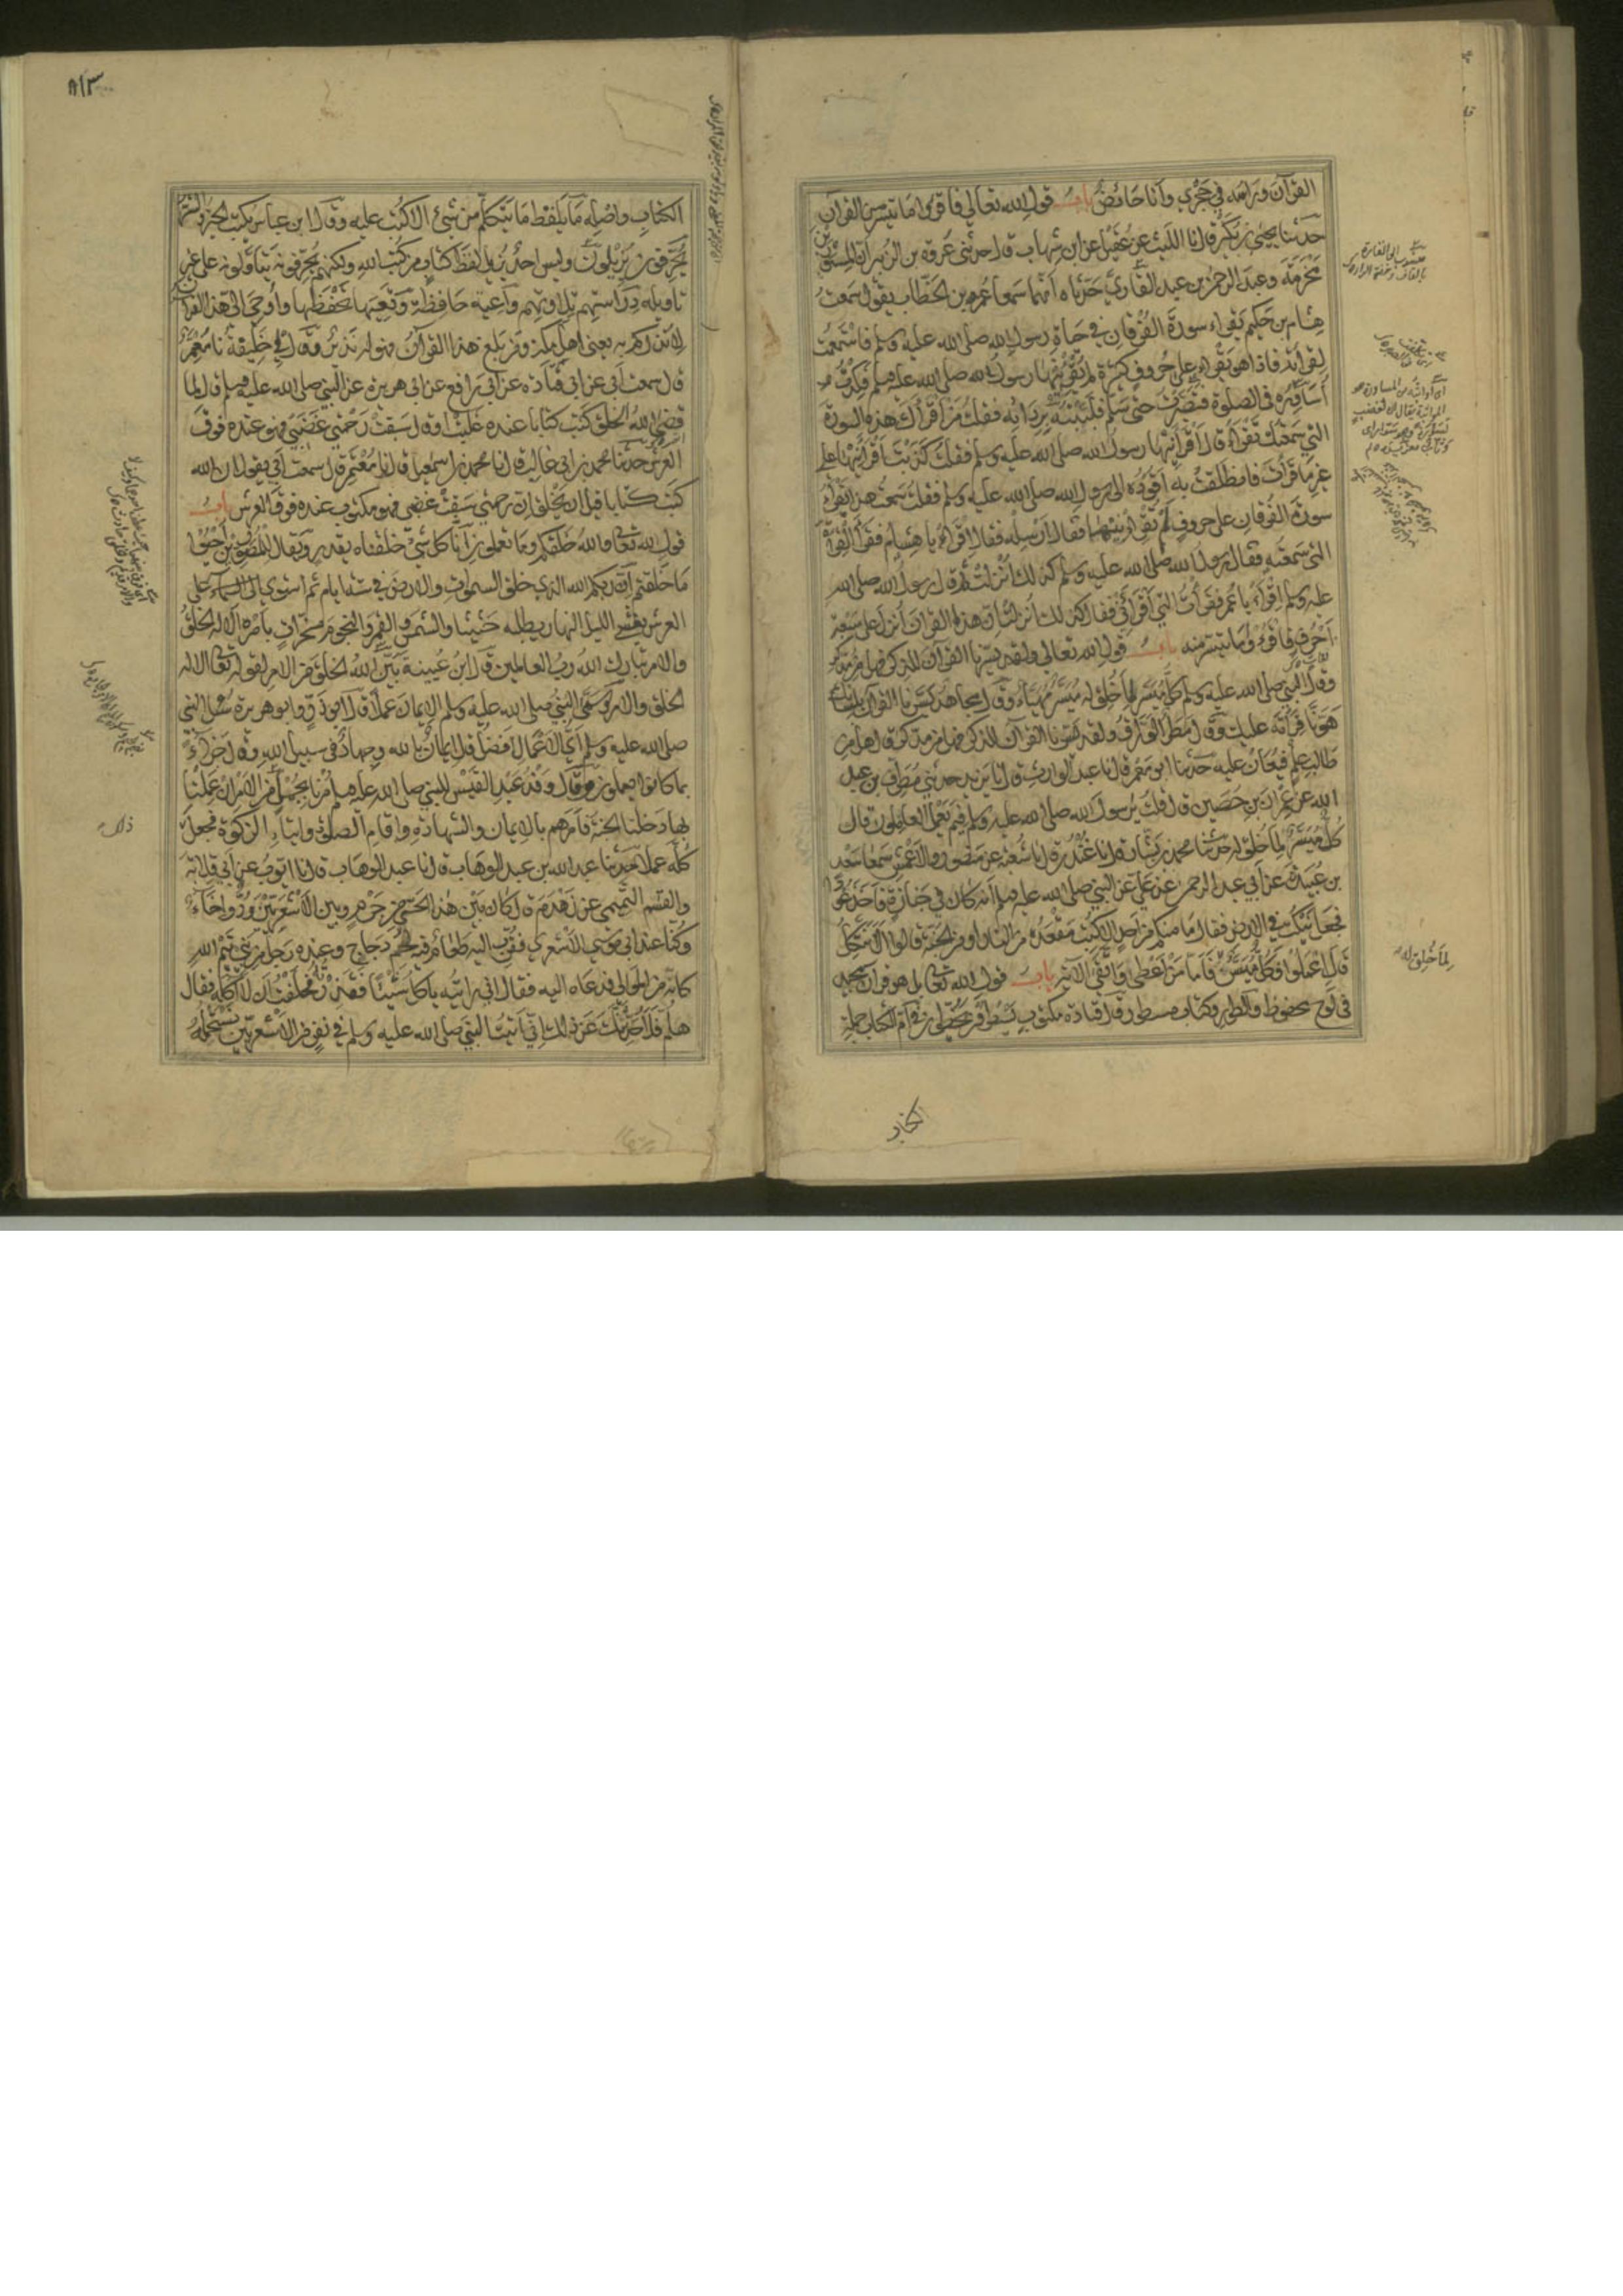 القرآن وراسه في حجري وأنا حائض باب قول الله تعالى فاقرؤا ما تيسر من القرآن
حدثنا يحيى بن بكير قال نا الليث عن عقيل عن ابن شهاب قال حدثني عروة بن الزبير أن المسور بن
مخرمة وعبد الرحمن بن عبد القاري حدثاه أنهما سمعا عمر بن الخطاب يقول سمعت
هشام بن حكيم يقراء سورة الفرقان في حياة رسول الله صلى الله عليه وسلم فاستمعت
لقرأته فاذا هو يقراء على حروف كثيرة لم يقرئنيها رسول الله صلى الله عليه وسلم فكدت
أساوره في الصلوة فتصبرت حتى سلم فلببته بردائه فقلت من أقرأك هذه السورة
التي سمعتك تقرأ قال أقرأنيها رسول الله صلى الله عليه وسلم فقلت كذبت أقرأنيها على
غير ما قرأت فانطلقت به أقوده الى رسول الله صلى الله عليه وسلم فقلت سمعت هذا يقرأ
سورة الفرقان على حروف لم تقرئنيها فقال أرسله فقال اقرأ يا هشام فقرأ القراة
التي سمعته فقال رسول الله صلى الله عليه وسلم كذلك أنزلت ثم قال رسول الله صلى الله
عليه وسلم اقرأ يا عمر فقرأت التي أقرأني فقال كذلك أنزلت ان هذا القرآن أنزل على سبعة
أحرف فاقرؤا ما تيسر منه باب قول الله تعالى ولقد يسرنا القرآن للذكر فهل من مدكر
وقال النبي صلى الله عليه وسلم كل ميسر لما خلق له ميسر مهيأ وقال مجاهد يسرنا القرآن بلسانك
هونا قرأته عليك وقال مطر الوراق ولقد يسرنا القرآن للذكر فهل من مدكر قال هل من
طالب علم فيعان عليه حدثنا ابو معمر قال نا عبد الوارث قال نا يزيد حدثني مطرف بن عبد
الله عن عمران بن حصين قال قلت يرسول الله صلى الله عليه وسلم فيم يعمل العاملون قال
كل ميسر لما خلق له حدثنا محمد بن بشار قال نا غندر قال نا شعبة عن منصور والاعمش سمعا سعد
بن عبيدة عن أبي عبد الرحمن عن علي عن النبي صلى الله عليه وسلم أنه كان في جنازة فأخذ عودا
فجعل ينكت في الارض فقال ما منكم من أحد الا كتب مقعده من النار او من الجنة قالوا ألا نتكل
قال اعملوا فكل ميسر فأما من أعطى واتقى الآية باب قول الله تعالى بل هو قرآن مجيد
في لوح محفوظ والطور وكتاب مسطور قال قتادة مكتوب يسطرون يخطون في أم الكتاب جملة
لما خلق له
الكتاب وأصله ما يلفظ ما يتكلم من شئ الا كتب عليه وقال ابن عباس يكتب الخير والشر
يحرفون يزيلون وليس احد يزيل لفظ كتاب من كتب الله ولكنهم يحرفونه يتأولونه على غير
تاويله دراستهم تلاوتهم واعية حافظة وتعيها تحفظها وأوحي الي هذا القرآن
لأنذركم به يعني اهل مكة ومن بلغ هذا القرآن فهو له نذير وقال لي خليفة نا معتمر
قال سمعت أبي عن قتادة عن أبي رافع عن ابي هريرة عن النبي صلى الله عليه وسلم قال لما
قضى الله الخلق كتب كتابا عنده غلبت او قال سبقت رحمتي غضبي فهو عنده فوق
العرش حدثنا محمد بن ابي غالب قال نا محمد بن اسمعيل قال نا معتمر قال سمعت أبي يقول ان الله
كتب كتابا قبل ان يخلق ان رحمتي سبقت غضبي فهو مكتوب عنده فوق العرش باب
قول الله تعالى والله خلقكم وما تعملون انا كل شئ خلقناه بقدر ويقال للمصورين أحيوا
ما خلقتم ان ربكم الله الذي خلق السموات والارض في ستة ايام ثم استوى على
العرش يغشي الليل النهار يطلبه حثيثا والشمس والقمر والنجوم مسخرات بأمره ألا له الخلق
والامر تبارك الله رب العالمين قال ابن عيينة بين الله الخلق من الامر لقوله تعالى الا له
الخلق والامر وسمى النبي صلى الله عليه وسلم الايمان عملا قال ابو ذر وابو هريرة سئل النبي
صلى الله عليه وسلم أي الاعمال أفضل قال ايمان بالله وجهاد في سبيل الله وقال جزاء
بما كانوا يعملون وقال وفد عبد القيس للنبي صلى الله عليه وسلم مرنا بجمل من الامر ان عملنا
بها دخلنا الجنة فأمرهم بالايمان والشهادة واقام الصلوة وايتاء الزكوة فجعل
كله عملا حدثنا عبد الله بن عبد الوهاب قال نا عبد الوهاب قال نا ايوب عن أبي قلابة
والقسم التميمي عن زهدم قال كان بين هذا الحي من جرم وبين الاشعريين ود واخاء
وكنا عند ابي موسى الاشعري فقرب اليه طعام فيه لحم دجاج وعنده رجل من بني تيم الله
كانه من الموالي فدعاه اليه فقال اني رايته ياكل شيئا فقذرته فحلفت ان لا آكله فقال
هلم فلأحدثك عن ذلك اني أتيت النبي صلى الله عليه وسلم في نفر من الاشعريين نستحمله
ذلك
٨١٣